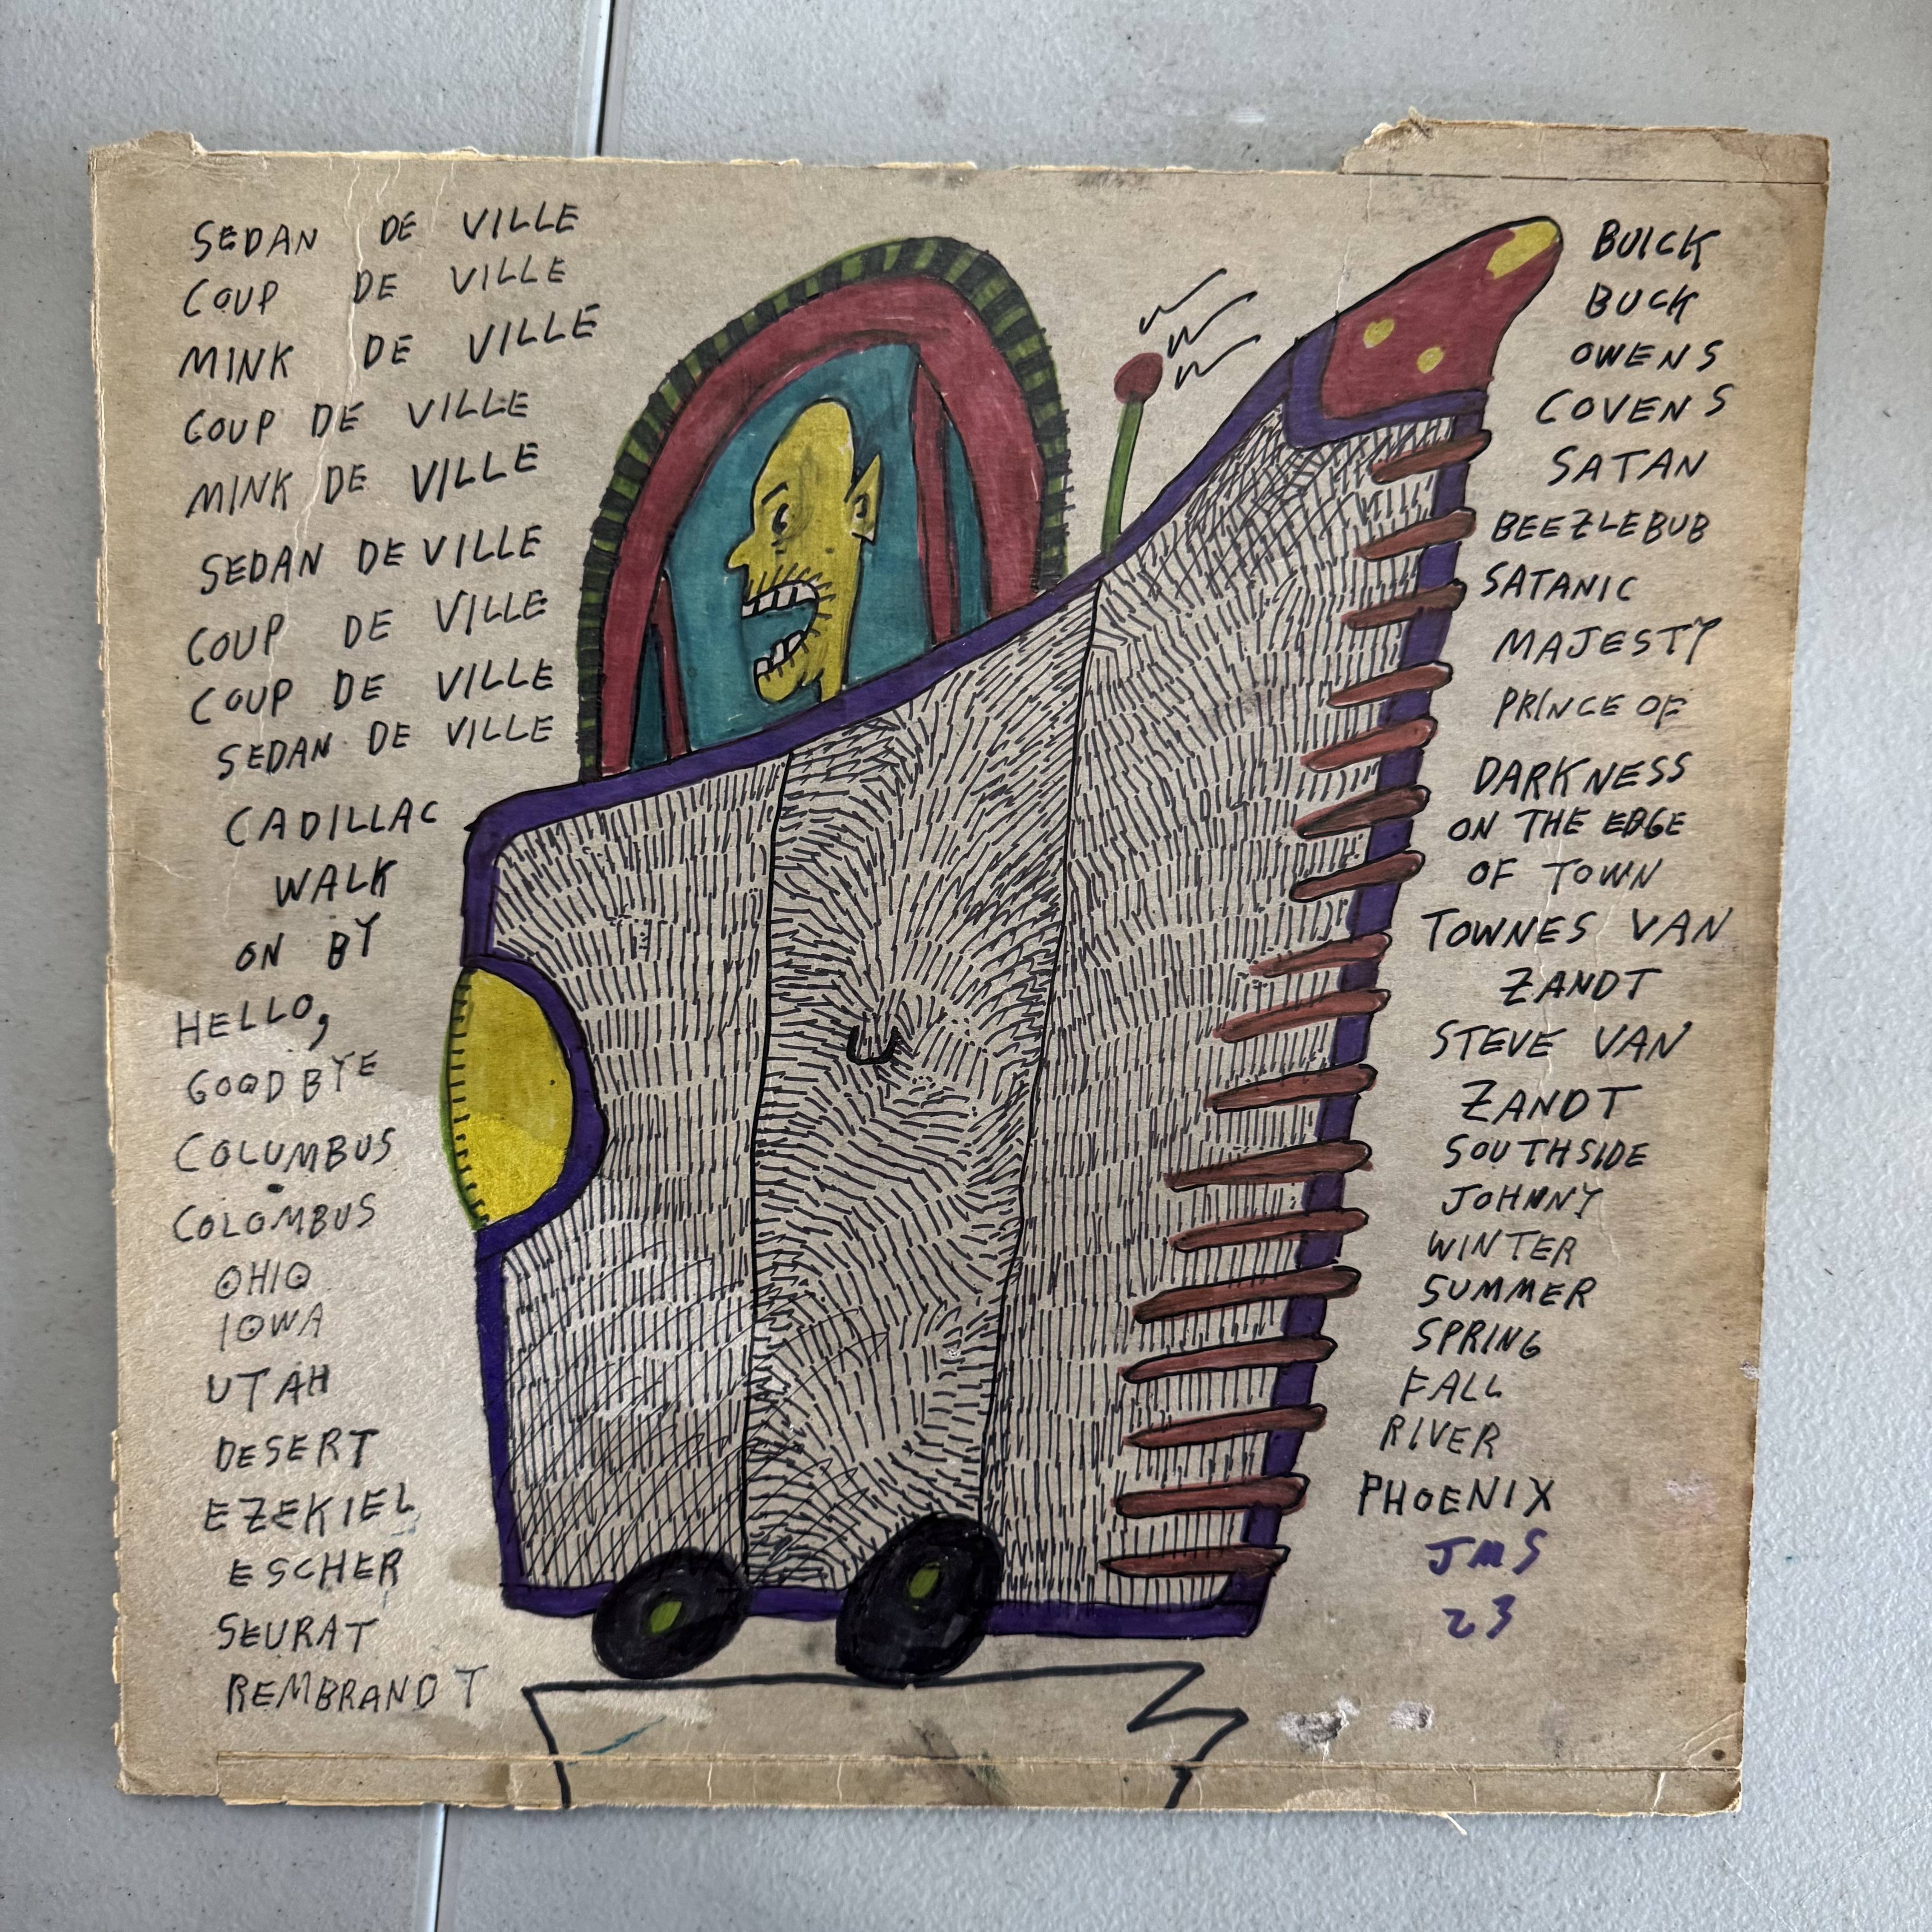 SEDAN DE VILLE
COUP DE VILLE
MINK DE VILLE
COUP DE VILLE
MINK DE VILLE
SEDAN DE VILLE
COUP DE VILLE
COUP DE VILLE
SEDAN DE VILLE
CADILLAC
WALK
ON BY
HELLO,
GOODBYE
COLUMBUS
COLOMBUS
OHIO
IOWA
UTAH
DESERT
EZEKIEL
ESCHER
SEURAT
REMBRANDT
BUICK
BUCK
OWENS
COVENS
SATAN
BEEZLEBUB
SATANIC
MAJESTY
PRINCE OF
DARKNESS
ON THE EDGE
OF TOWN
TOWNES VAN
ZANDT
STEVE VAN
ZANDT
SOUTHSIDE
JOHNNY
WINTER
SUMMER
SPRING
FALL
RIVER
PHOENIX
JMS
23